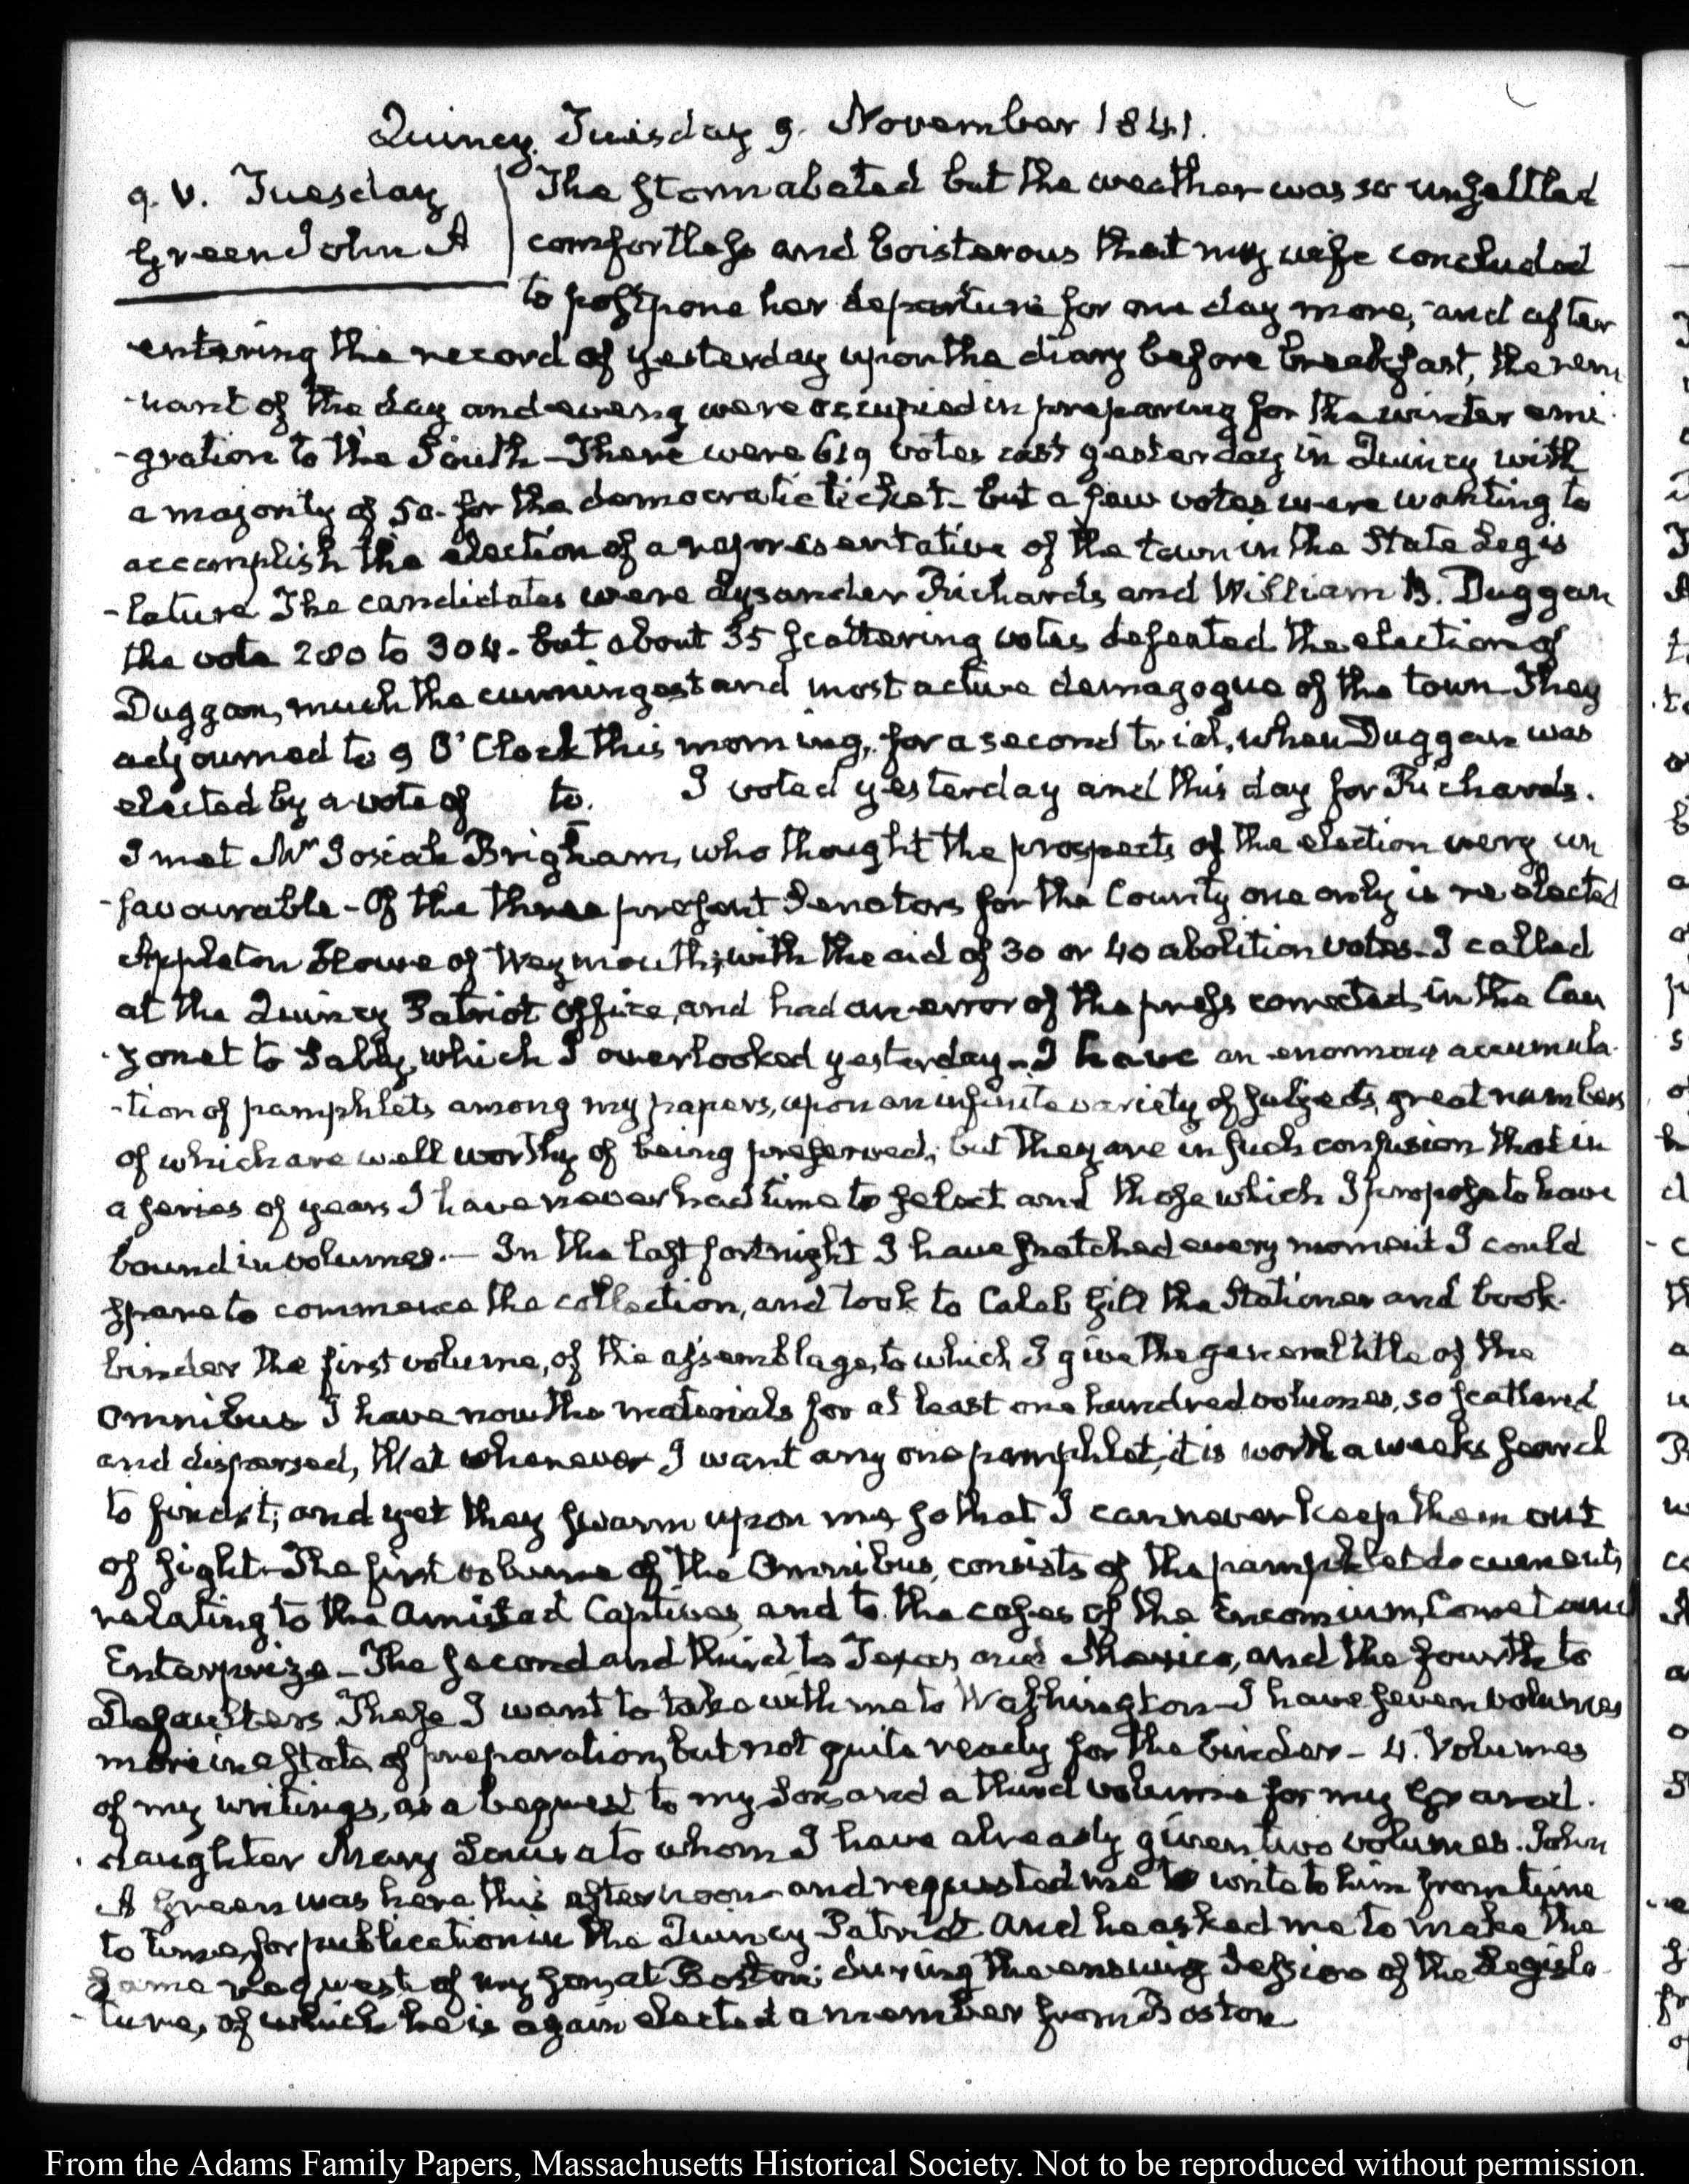 Quincy. Tuesday 9. November 1841.
9. V. Tuesday
Green John A
The storm abated but the weather was so unsettled
comfortless and boisterous that my wife concluded
to postpone her departure for one day more, and after
entering the record of yesterday upon the diary before breakfast, the rem
-nant of the day and evening were occupied in preparing for the winter emi
-gration to the South - There were 619 votes cast yesterday in Quincy with
a majority of 50. for the democratic ticket - but a few votes were wanting to
accomplish the election of a representative of the town in the State Legis
-lature The candidates were Lysander Richards and William B. Duggan
the vote 280 to 304 - but about 35 scattering votes defeated the election of
Duggan, much the cunningest and most active demagogue of the town They
adjourned to 9 O'Clock this morning, for a second trial, when Duggan was
elected by a vote of to. I voted yesterday and this day for Richards.
I met Mr Josiah Brigham, who thought the prospects of the election very un
-favourable - Of the three present Senators for the County one only is re elected
Appleton Howe of Weymouth; with the aid of 30 or 40 abolition votes - I called
at the Quincy Patriot Office, and had an error of the press corrected in the Can
-zonet to Sally, which I overlooked yesterday - I have an enormous accumula-
-tion of pamphlets among my papers, upon an infinite variety of subjects, great numbers
of which are well worthy of being preserved; but they are in such confusion that in
a series of years I have never had time to select and those which I propose to have
bound in volumes. - In the last fortnight I have snatched every moment I could
spare to commence the collection, and took to Caleb Gill the Stationer and book-
binder the first volume, of the assemblage, to which I give the general title of the
Omnibus I have now the materials for at least one hundred volumes, so scattered
and dispersed, that whenever I want any one pamphlet, it is worth a weeks search
to find it; and yet they swarm upon me, so that I can never keep them out
of sight - The first volume of the Omnibus, consists of the pamphlet documents
relating to the Amistad Captives, and to the cases of the Encomium, Comet and
Enterprize - The second and third to Texas and Mexico, and the fourth to
Defaulters These I want to take with me to Washington - I have seven volumes
more in a state of preparation, but not quite ready for the binder - 4. Volumes
of my writings, as a bequest to my Son and a third volume for my Grand.
daughter Mary Louisa to whom I have already given two volumes. John
A Green was here this afternoon and requested me to write to him from time
to time, for publication in the Quincy Patriot and he asked me to make the
same request of my son, at Boston; during the ensuing Session of the Legisla-
-ture, of which he is again elected a member from Boston
From the Adams Family Papers, Massachusetts Historical Society. Not to be reproduced without permission.